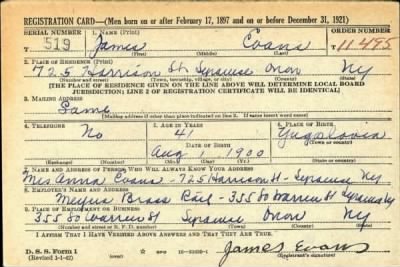 REGISTRATION CARD—(Men born on or after February 17, 1897 and on or before December 31, 1921)
SERIAL NUMBER 1. NAME (Print) ORDER NUMBER
519 James Evans 11495
(First) (Middle) (Last)
2. PLACE OF RESIDENCE (Print)
725 Harrison St. Syracuse Onon NY
(Number and street) (Town, township, village, or city) (County) (State)
[THE PLACE OF RESIDENCE GIVEN ON THE LINE ABOVE WILL DETERMINE LOCAL BOARD
JURISDICTION; LINE 2 OF REGISTRATION CERTIFICATE WILL BE IDENTICAL]
3. MAILING ADDRESS
Same
[Mailing address if other than place indicated on line 2. If same insert word same]
4. TELEPHONE 5. AGE IN YEARS 6. PLACE OF BIRTH
No 41 Yugolovia
DATE OF BIRTH (Town or county)
Aug 1 1900
(Exchange) (Number) (Mo.) (Day) (Yr.) (State or country)
7. NAME AND ADDRESS OF PERSON WHO WILL ALWAYS KNOW YOUR ADDRESS
Mrs Anna Evans - 725 Harrison St - Syracuse NY
8. EMPLOYER'S NAME AND ADDRESS
Brass Rail - 355 So Warren St Syracuse NY
9. PLACE OF EMPLOYMENT OR BUSINESS
355 So Warren St Syracuse Onon NY
(Number and street or R. F. D. number) (Town) (County) (State)
I AFFIRM THAT I HAVE VERIFIED ABOVE ANSWERS AND THAT THEY ARE TRUE.
D. S. S. Form 1
(Revised 1-1-42) (over) James Evans
(Registrant's signature)